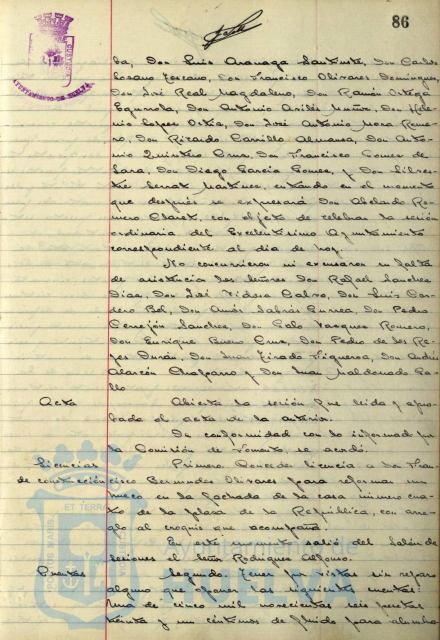 86
AYUNTAMIENTO DE HUELVA
ba, Don Luis Aranaga Santuste, Don Carlos
Lozano Toscano, Don Francisco Olivares Domínguez,
Don José Real Magdaleno, Don Ramón Ortega
Don Antonio Avilés Muñoz, Don
López Ostia, Don José Antonio Mora Rome-
ro, Don Ricardo Carrillo Almansa, Don Anto-
nio Quintero Cruz, Don Francisco Gómez de
Lara, Don Diego García Gómez, y Don Silves-
tre Serrat Martínez, entrando en el momento
que después se expresará Don Abelardo Ro-
mero Claret, con objeto de celebrar la sesión
ordinaria del Excelentísimo Ayuntamiento
correspondiente al día de hoy.
No concurrieron ni excusaron su falta
de asistencia los señores Don Rafael Sánchez
Díaz, Don José Calvo, Don Luis Cor-
dero Bel, Don Amós Sabrás Gurrea, Don Pedro
Cerrejón Sánchez, Don Galo Vázquez Romero,
Don Enrique Bueno Cruz, Don Pedro de los Re-
yes Durán, Don Juan Tirado Figueroa, Don Andrés
Alarcón Chaparro y Don Juan Maldonado Ga-
llo
Acta Abierta la sesión fue leída y apro-
bada el acta de la anterior.
De conformidad con lo informado por
la Comisión de Fomento, se acordó.
Licencias Primero. Conceder licencia a Don Fran-
de construcción cisco Bermúdez Olivares para reformar un
hueco en la fachada de la casa número cua-
tro de la plaza de la República, con arre-
glo al croquis que acompaña.
En este momento salió del Salón de
sesiones el Señor Rodríguez Alfonso.
Cuentas Segundo. Tener por vistas sin reparo
alguno que oponer las siguientes cuentas:
Una de cinco mil novecientas seis pesetas
treinta y un céntimos de fluido para alumbra